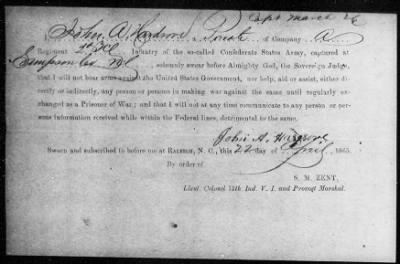 Capt March 26
I, John A. Hardison Private of Company A
Regiment 2d NC Infantry of the so-called Confederate States Army, captured at
Sampson Co NC, solemnly swear before Almighty God, the Sovereign Judge,
that I will not bear arms against the United States Government, nor help, aid or assist, either di-
rectly or indirectly, any person or persons in making war against the same until regularly ex-
changed as a Prisoner of War; and that I will not at any time communicate to any person or per-
sons information received while within the Federal lines, detrimental to the same.
John A.
Sworn and subscribed to before me at RALEIGH, N. C., this 22 day of April, 1865.
By order of
S. M. ZENT,
Lieut. Colonel 13th Ind. V. I. and Provost Marshal.